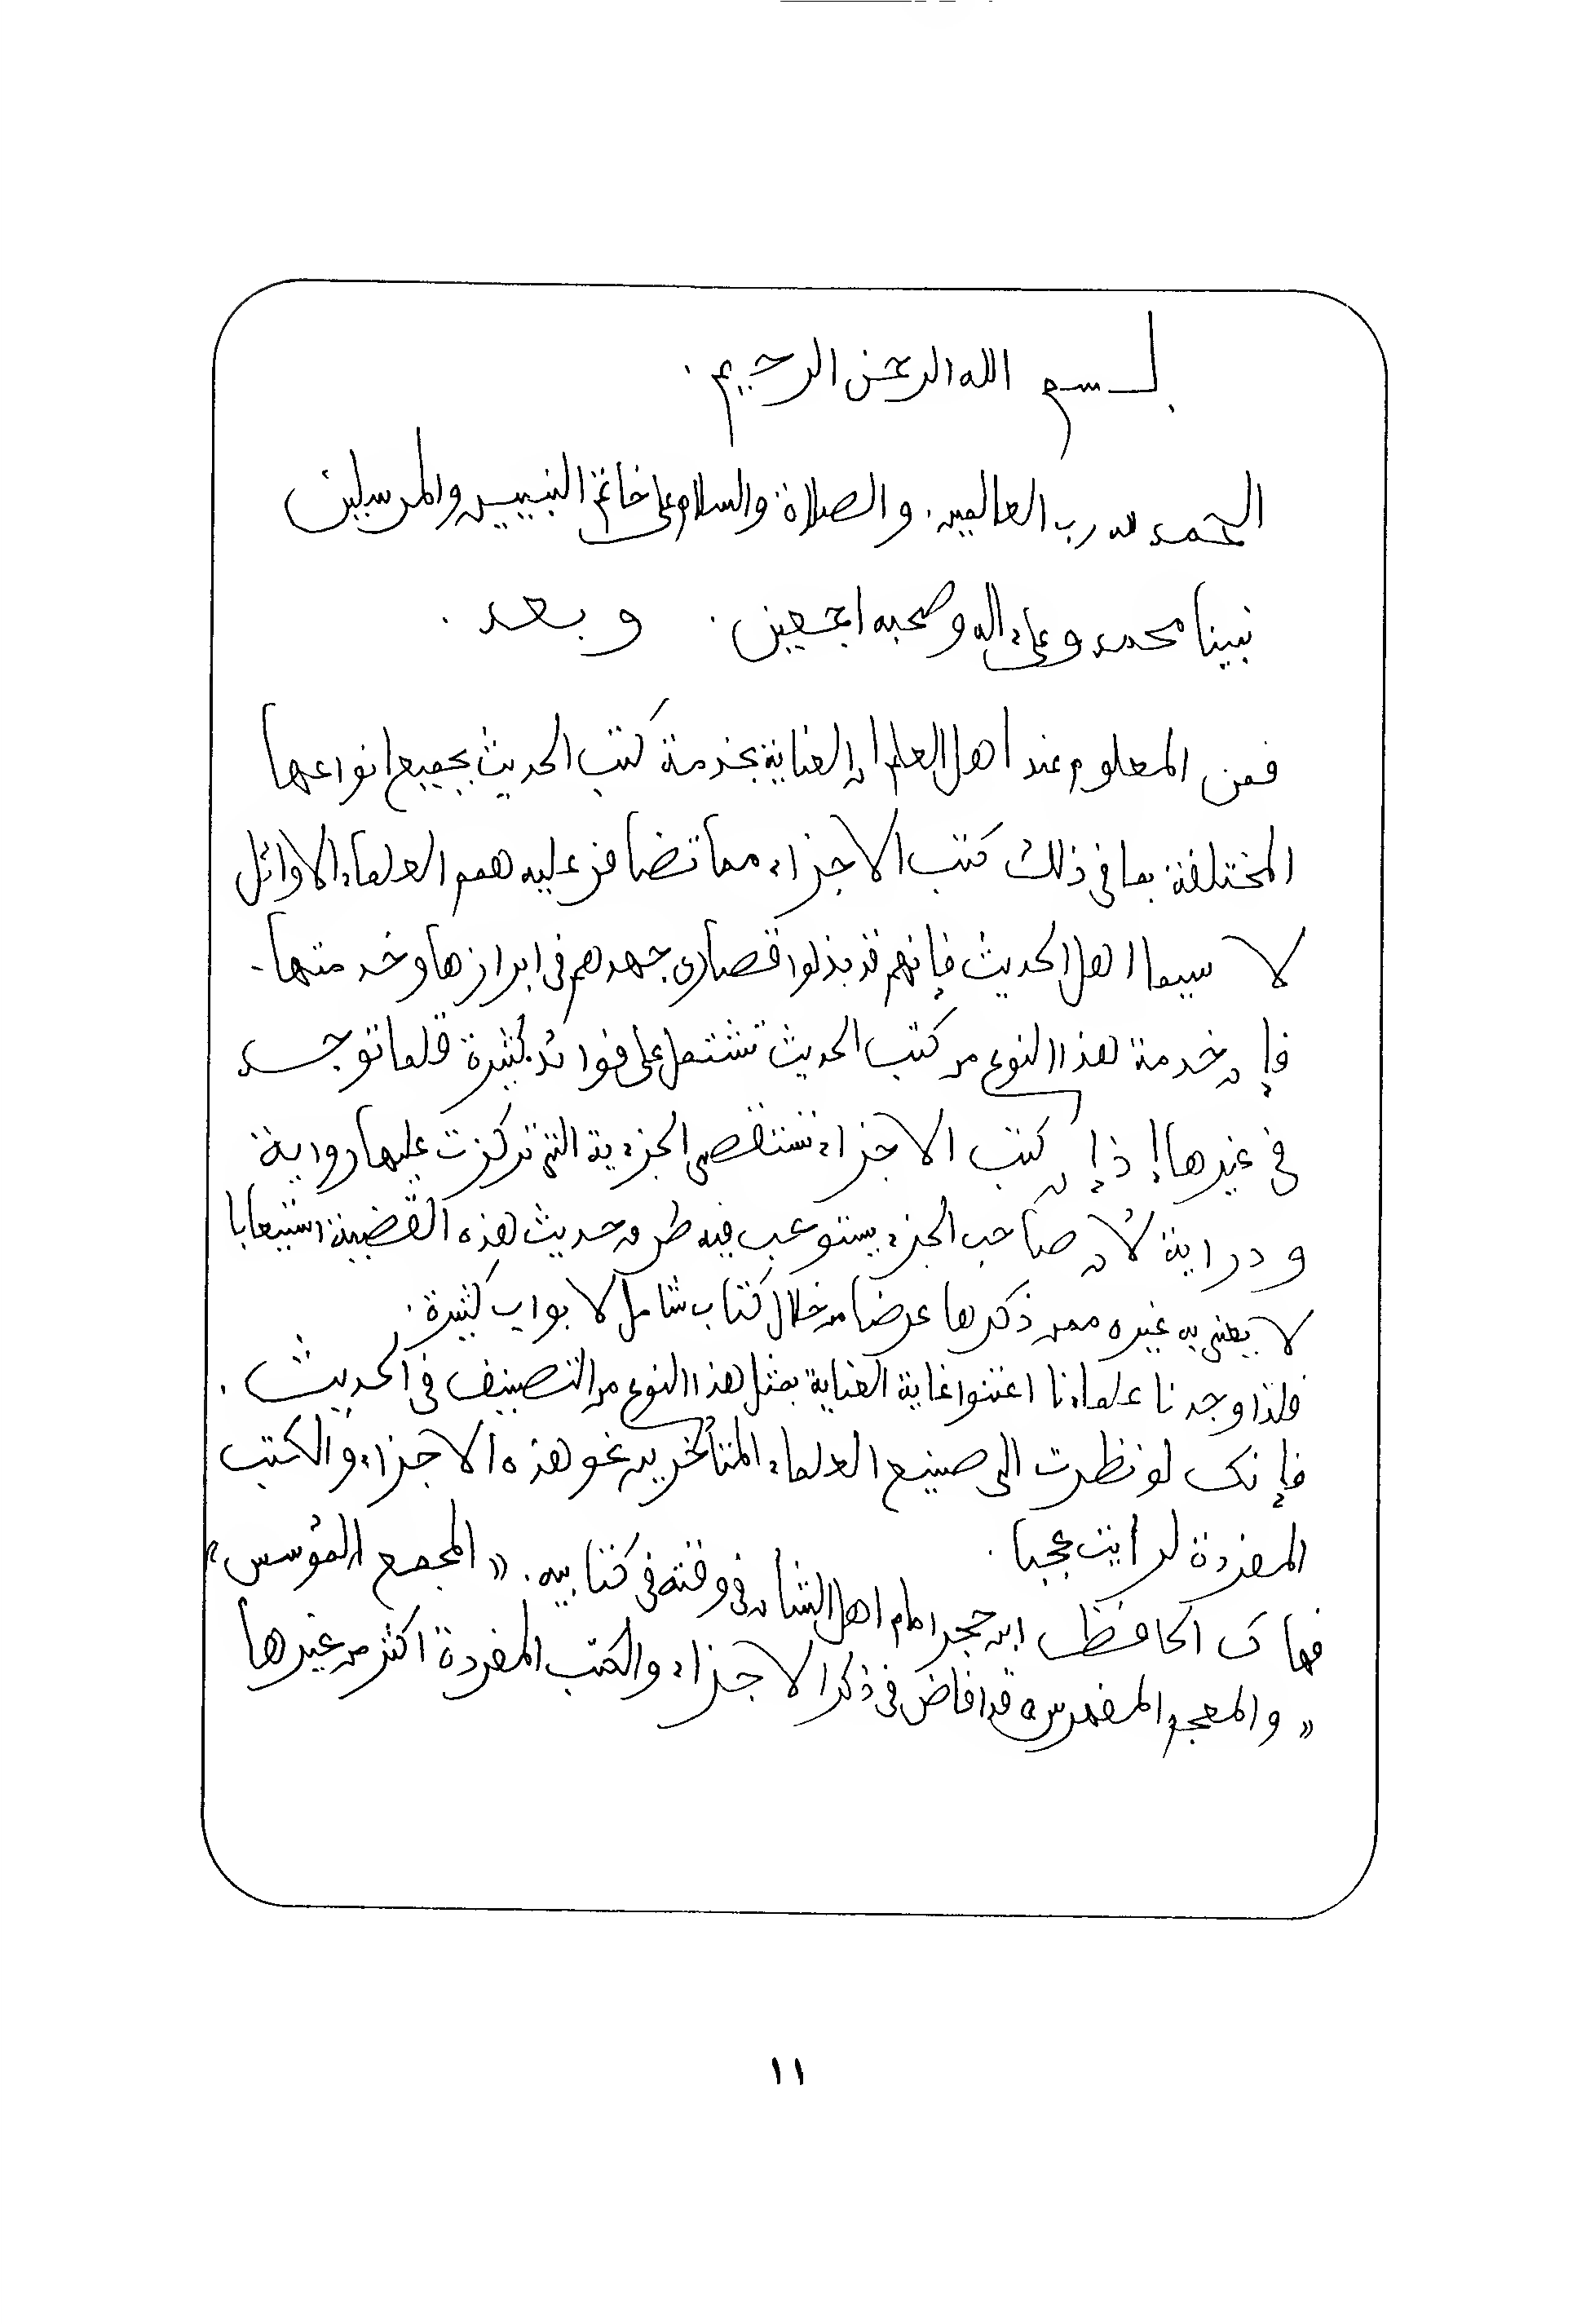 بسم الله الرحمن الرحيم .
الحمد لله رب العالمين . والصلاة والسلام على خاتم النبيين والمرسلين
نبينا محمد وعلى اله وصحبه اجمعين . وبعد .
فمن المعلوم عند اهل العلم ان العناية بخدمة كتب الحديث بجميع انواعها
المختلفة بما في ذلك كتب الاجزاء مما تضافر عليه همم العلماء الاوائل
لا سيما اهل الحديث فإنهم قد بذلوا قصارى جهدهم في ابرازها وخدمتها .
فإن خدمة هذا النوع من كتب الحديث تشتمل على فوائد كثيرة قلما توجد
في غيرها إذ إن كتب الاجزاء تستقصى الجزءية التي تركزت عليها رواية
ودراية لأن صاحب الجزء يستوعب فيه طرق حديث هذه القضية استيعابا
لا يعنى به غيره ممن ذكرها عرضا من خلال كتاب شامل لابواب كثيرة .
فلذا وجدنا علماءنا اعتنوا غاية العناية بمثل هذا النوع من التصنيف في الحديث .
فإنك لو نظرت الى صنيع العلماء المتأخرين نحو هذه الاجزاء والكتب
المفردة لرايت عجبا .
فهاك الحافظ ابن حجر امام اهل الشان في وقته في كتابيه . « المجمع المؤسس »
« والمعجم المفهرس » قد افاض في ذكر الاجزاء والكتب المفردة اكثر من غيرها
١١